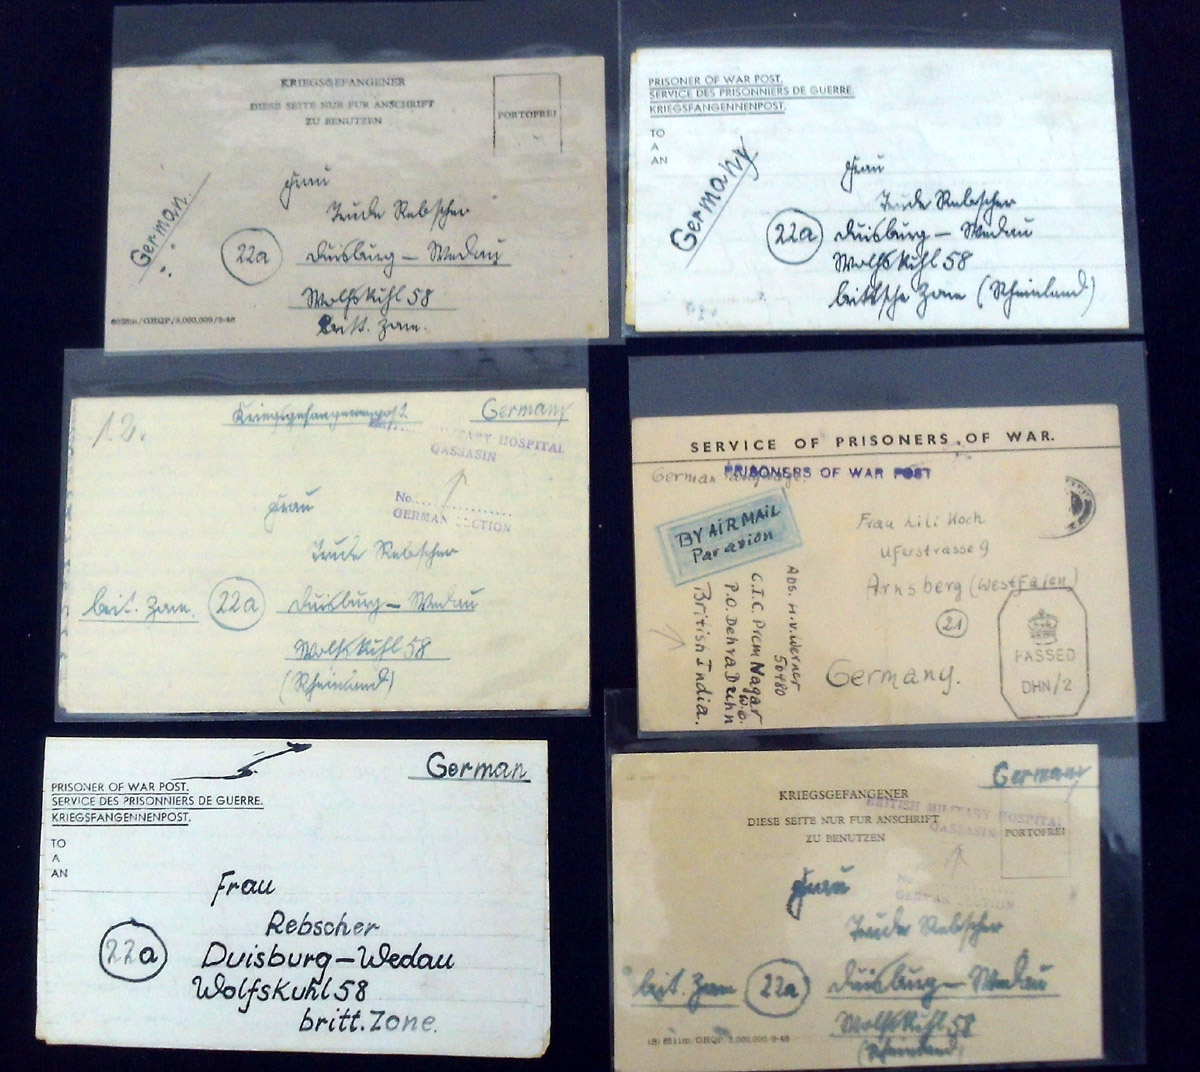 KRIEGSGEFANGENER
DIESE SEITE NUR FUR ANSCHRIFT
ZU BENUTZEN
PORTOFREI
German.
Frau
Trude Rebscher
22a Duisburg - Wedau
Wolfskuhl 58
britt. Zone.
6011m/GHQP/3,000,000/9-46
PRISONER OF WAR POST.
SERVICE DES PRISONNIERS DE GUERRE.
KRIEGSFANGENNENPOST.
TO
A
AN
Germany
Frau
Trude Rebscher
22a Duisburg - Wedau
Wolfskuhl 58
brittsche Zone (Rheinland)
1.2.
Kriegsgefangenenpost
Germany
MILITARY HOSPITAL
QASSASIN
No.
GERMAN SECTION
Frau
Trude Rebscher
brit. Zone. 22a Duisburg - Wedau
Wolfskuhl 58
(Rheinland)
SERVICE OF PRISONERS OF WAR.
PRISONERS OF WAR POST
German language.
BY AIR MAIL
Par avion
Frau Lili Koch
Uferstrasse 9
Arnsberg (Westfalen)
21
Germany.
Abs. H.v.Werner
50480
C.I.C. Prem Nagar
W.O.
P.O. Dehra Duhn
British India.
PASSED
DHN/2
German
PRISONER OF WAR POST.
SERVICE DES PRISONNIERS DE GUERRE.
KRIEGSFANGENNENPOST.
TO
A
AN
Frau
Rebscher
22a Duisburg-Wedau
Wolfskuhl 58
britt. Zone.
Germany
KRIEGSGEFANGENER
DIESE SEITE NUR FUR ANSCHRIFT
ZU BENUTZEN
PORTOFREI
BRITISH MILITARY HOSPITAL
QASSASIN
No.
GERMAN SECTION
Frau
Trude Rebscher
brit. Zone 22a Duisburg - Wedau
Wolfskuhl 58
(Rheinland)
6011m/GHQP/3,000,000/9-46